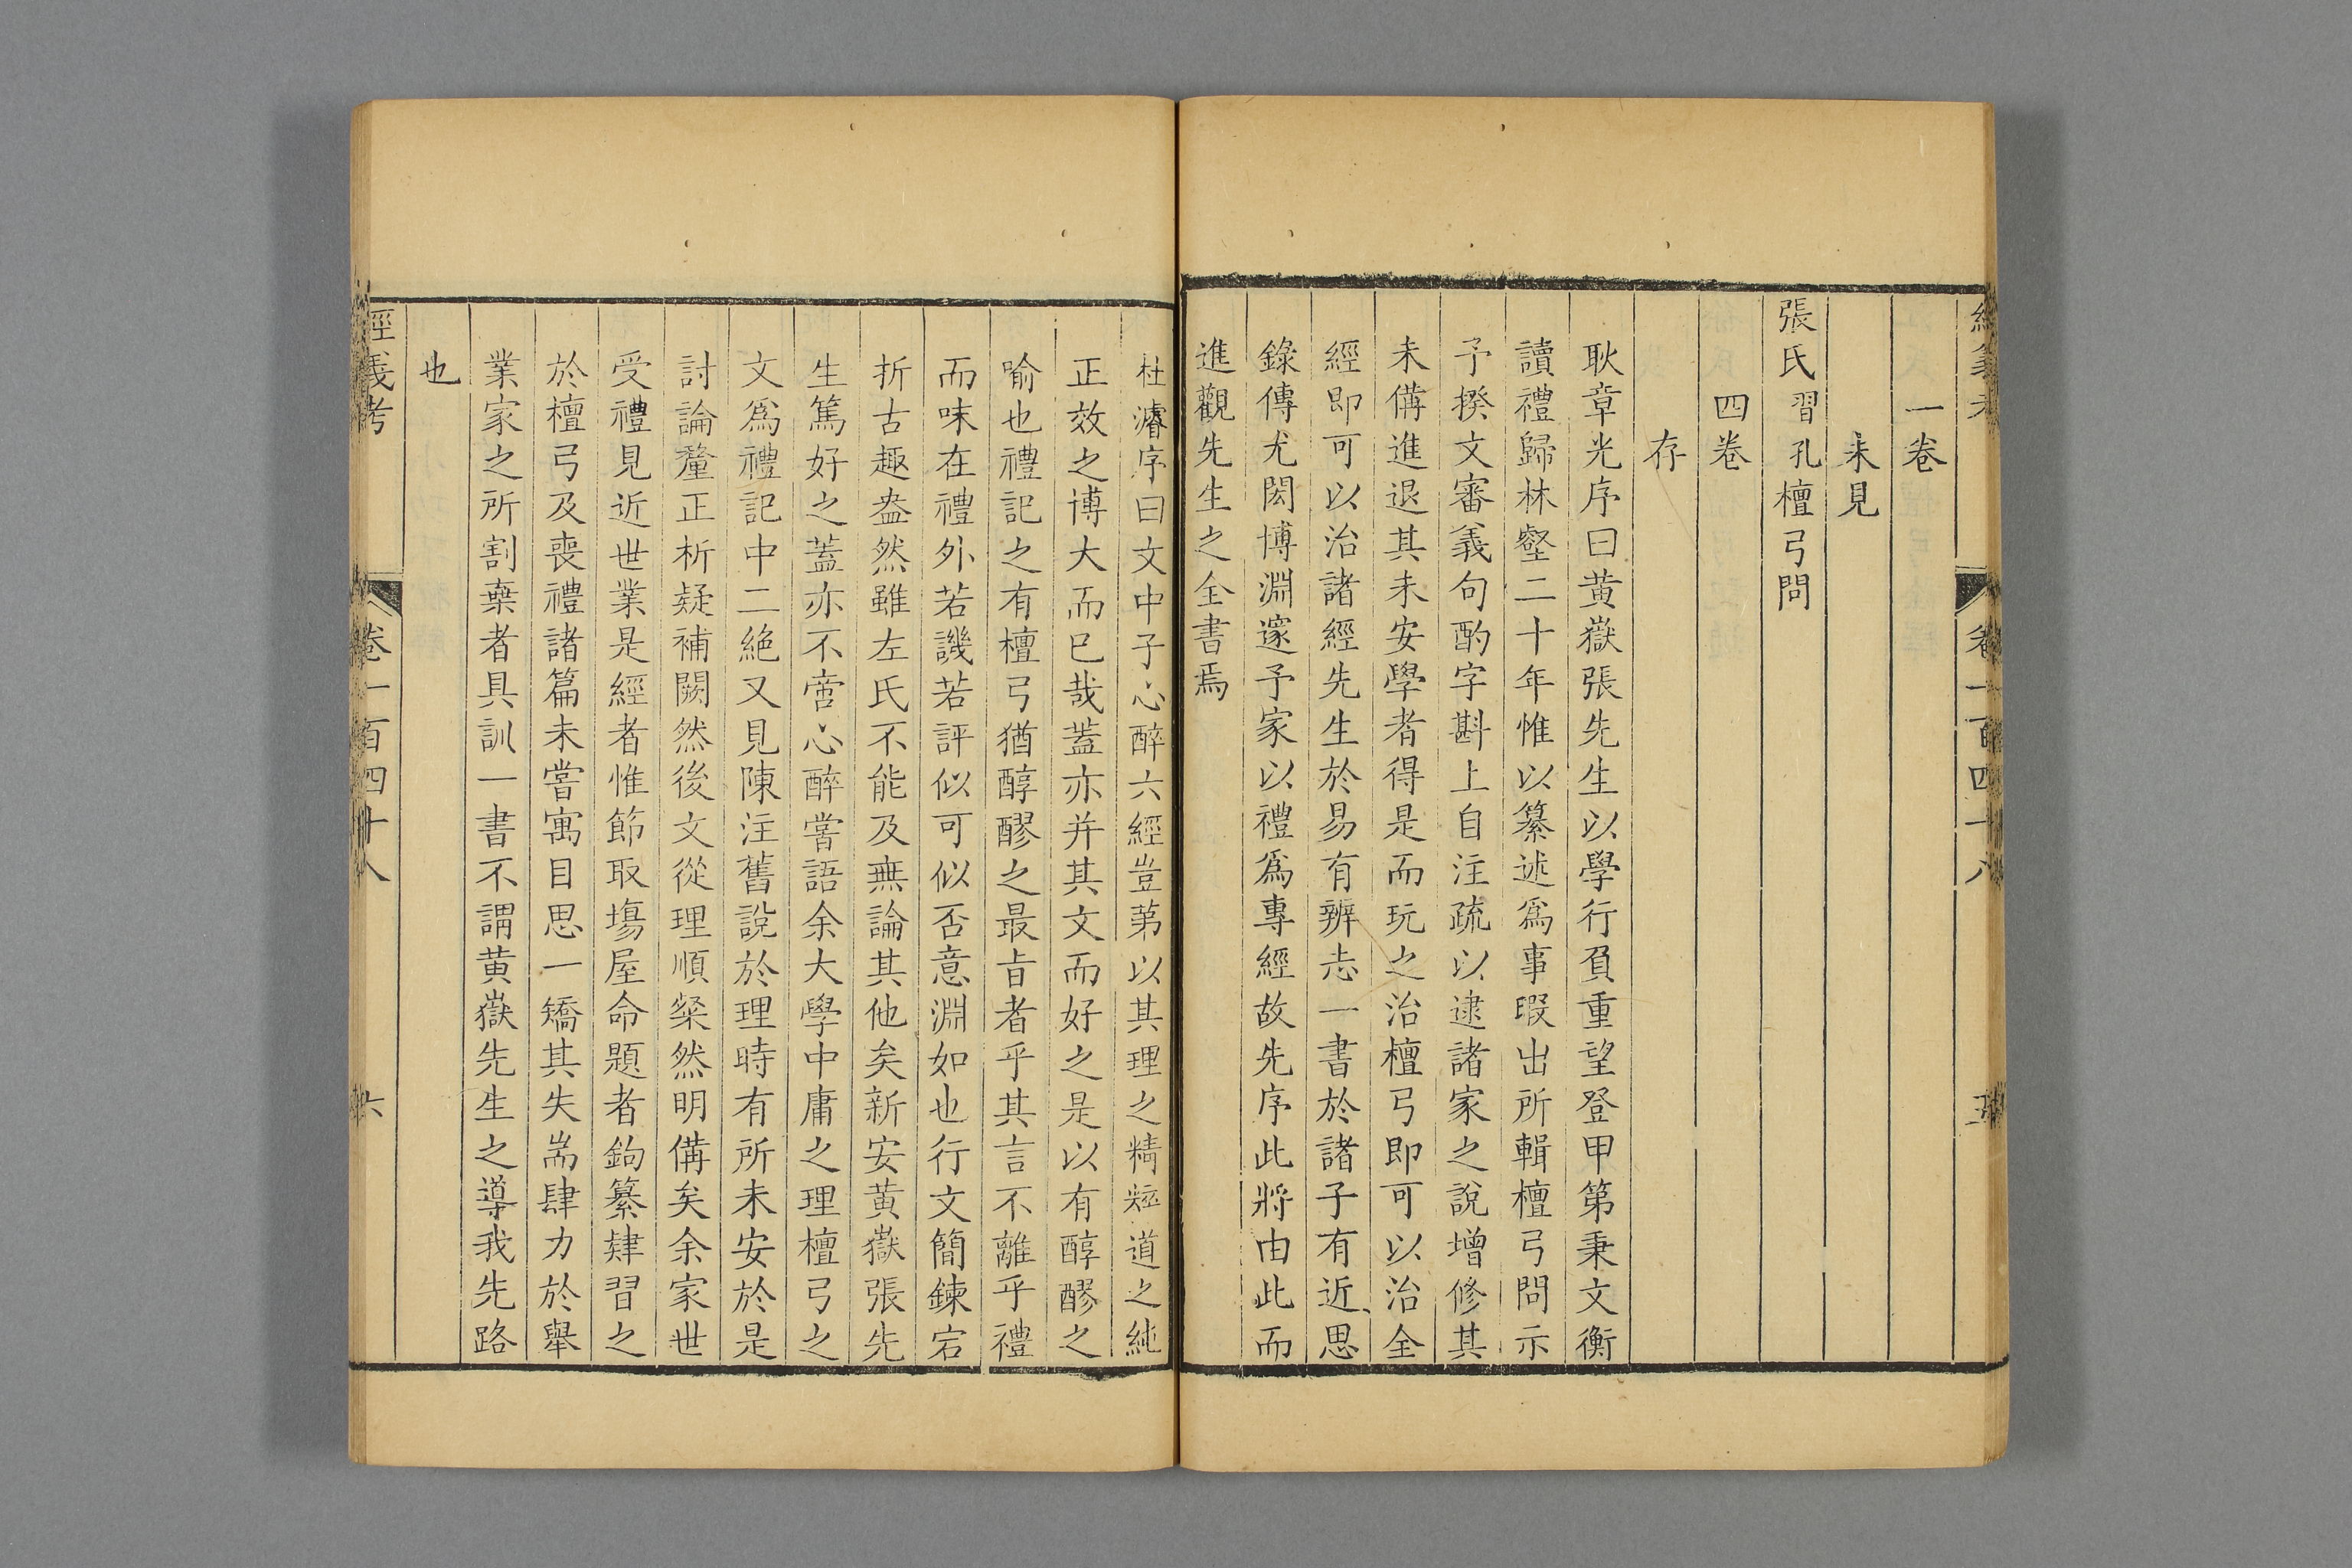 經義考 卷一百四十八 五
一卷
未見
張氏習孔檀弓問
四卷
存
耿章光序曰黄嶽張先生以學行負重望登甲第秉文衡
讀禮歸林壑二十年惟以纂述爲事暇出所輯檀弓問示
予揆文審義句酌字斟上自注疏以逮諸家之說增修其
未備進退其未安學者得是而玩之治檀弓即可以治全
經即可以治諸經先生於易有辨志一書於諸子有近思
錄傳尤閎博淵邃予家以禮爲專經故先序此將由此而
進觀先生之全書焉
杜濬序曰文中子心醉六經豈苐以其理之精粹道之純
正效之博大而已哉蓋亦并其文而好之是以有醇醪之
喻也禮記之有檀弓猶醇醪之最旨者乎其言不離乎禮
而味在禮外若譏若評似可似否意淵如也行文簡鍊宕
折古趣盎然雖左氏不能及無論其他矣新安黄嶽張先
生篤好之蓋亦不啻心醉嘗語余大學中庸之理檀弓之
文爲禮記中二絶又見陳注舊說於理時有所未安於是
討論釐正析疑補闕然後文從理順粲然明備矣余家世
受禮見近世業是經者惟節取塲屋命題者鈎纂肄習之
於檀弓及喪禮諸篇未嘗寓目思一矯其失耑肆力於舉
業家之所割棄者具訓一書不謂黄嶽先生之導我先路
也
經義考 卷一百四十八 六